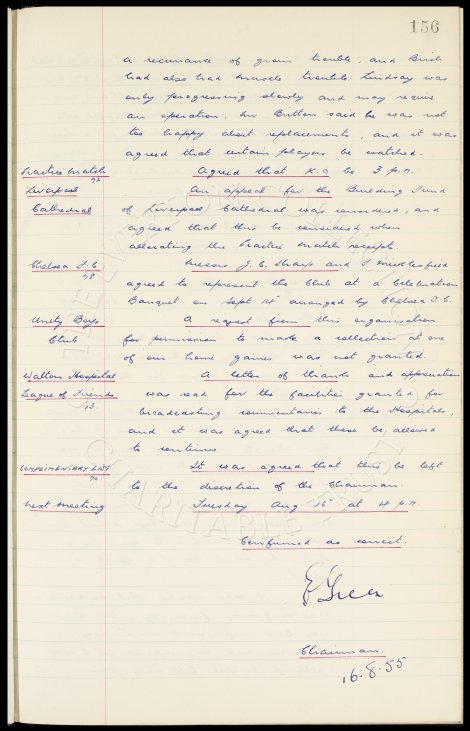 156
a recurrance of groin trouble, and Birch
had also had muscle trouble. Lindsay was
only progressing slowly and may require
an operation. Mr Britton said he was not
too happy about replacements, and it was
agreed that certain players be watched.
Practice Match Agreed that K.O be 3 p.m.
Liverpool An appeal for the Building Fund
Cathedral of Liverpool Cathedral was considered, and
agreed that this be considered when
allocating the Practice Match receipts.
Chelsea F.C. Messrs J.C. Sharp and F Micklesfield
78 agreed to represent the Club at a Celebration
Banquet on Sept 14th arranged by Chelsea F.C.
Unity Boys A request from this organisation
Club for permission to make a collection at one
of our home games was not granted.
Walton Hospital A letter of thanks and appreciation
League of Friends was read for the facilities granted for
13 broadcasting commentaries to the Hospitals,
and it was agreed that these be allowed
to continue
Complimentary List It was agreed that this be left
to the discretion of the Chairman.
Next Meeting Tuesday Aug 16th at 4 p.m.
Confirmed as correct.
E Green
Chairman.
16.8.55
CHARITABLE TRUST